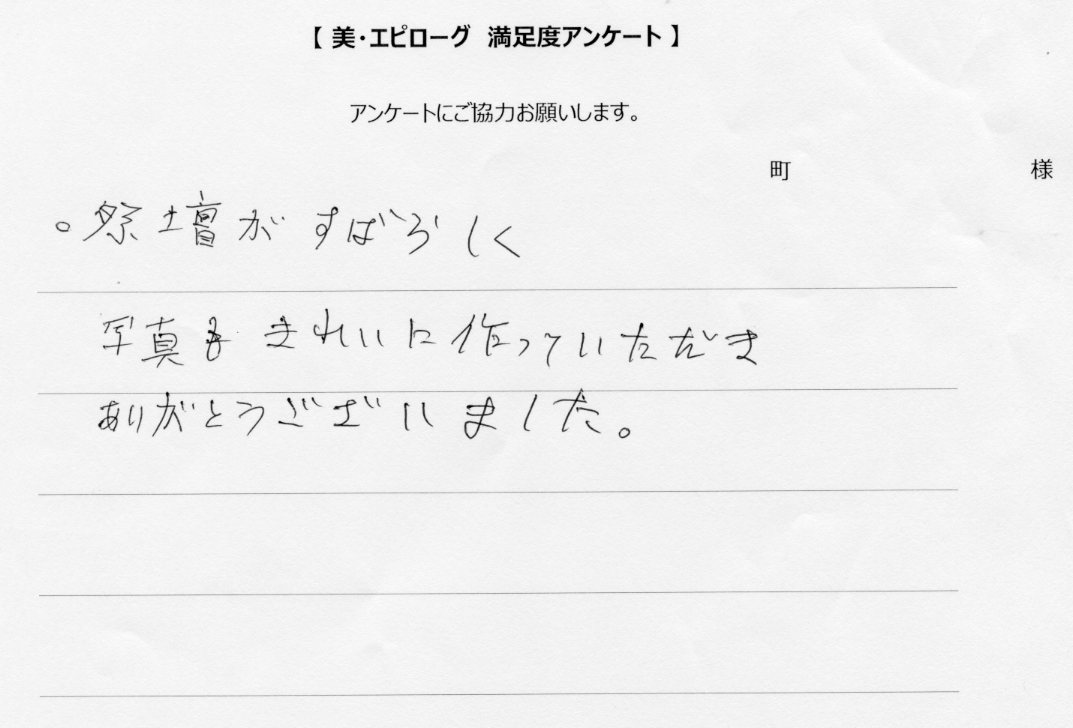 【 美・エピローグ 満足度アンケート 】
アンケートにご協力お願いします。
町 様
。祭壇がすばらしく
写真もきれいに作っていただき
ありがとうございました。